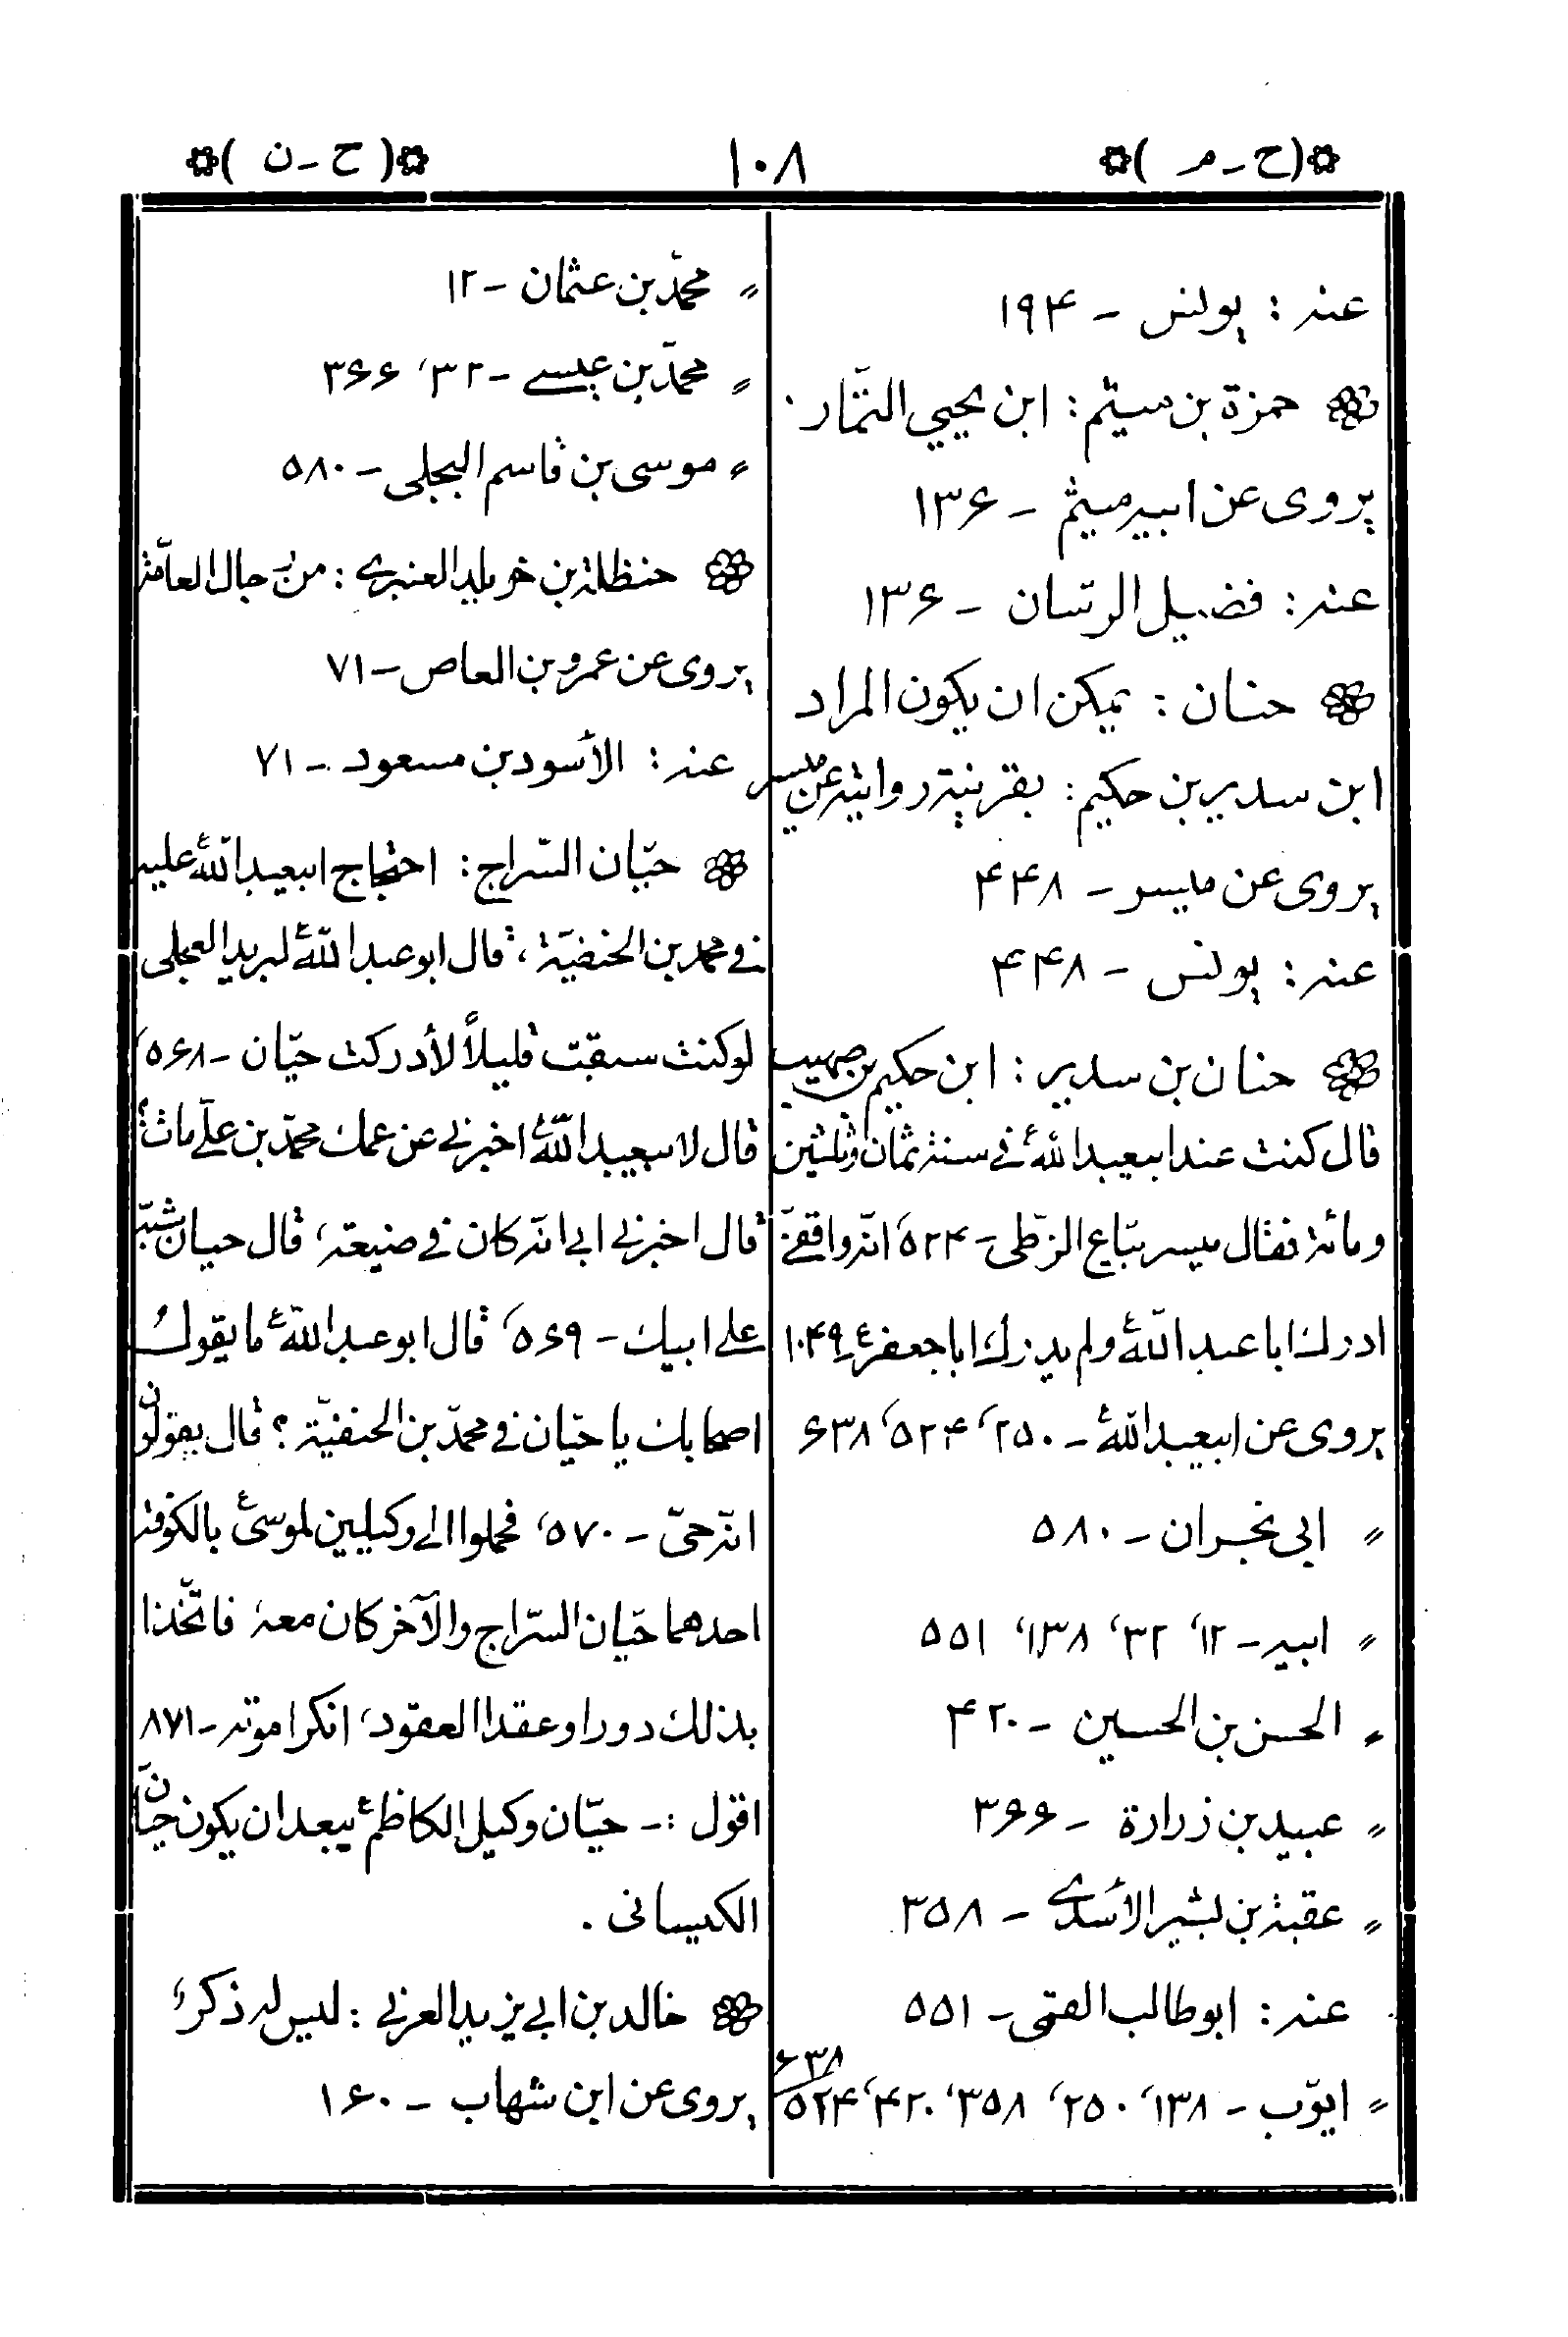 (ح - م)
١٠٨
(ح - ن)
عنه : يونس - ١٩۴
حمزة بن ميثم : ابن يحيي التمّار .
يروى عن ابيه ميثم - ١٣۶
عنه : فضيل الرسّان - ١٣۶
حنان : يمكن ان يكون المراد
ابن سدير بن حكيم : بقرينة روايته عن ميسر
يروى عن ميسر - ۴۴٨
عنه : يونس - ۴۴٨
حنان بن سدير : ابن حكيم بن صهيب
قال كنت عند ابيعبد الله ع في سنة ثمان وثلثين
ومائة فقال ميسر بيّاع الزطّى - ۵٢۴، انّه واقفيّ
ادرك ابا عبد الله ع ولم يدرك ابا جعفر ع - ١٠۴٩
يروى عن ابيعبد الله ع - ٢۵٠، ۵٢۴، ۶٣٨
〃 ابى نجران - ۵٨٠
〃 ابيه - ١٢، ٣٢، ١٣٨، ۵۵١
〃 الحسن بن الحسين - ۴٢٠
〃 عبيد بن زرارة - ٣۶۶
〃 عقبة بن بشير الأسدي - ٣۵٨
عنه : ابو طالب القمّى - ۵۵١
〃 ايّوب - ١٣٨، ٢۵٠، ٣۵٨، ۴٢٠، ۵٢۴ ۶٣٨
〃 محمّد بن عثمان - ١٢
〃 محمّد بن عيسى - ٣٢، ٣۶۶
〃 موسى بن قاسم البجلى - ۵٨٠
حنظلة بن خويلد العنبري : من رجال العامّة
يروى عن عمرو بن العاص - ٧١
عنه : الأسود بن مسعود - ٧١
حيّان السّراج : احتجاج ابيعبد الله ع عليه
في محمد بن الحنفيّة، قال ابو عبد الله ع لبريد العجلى
لو كنت سبقت قليلاً لأدركت حيّان - ۵۶٨،
قال لابيعبد الله ع اخبرني عن عمك محمّد بن علّي مات؟
قال اخبرني ابي انّه كان في ضيعته، قال حيان شبّه
على ابيك - ۵۶٩، قال ابو عبد الله ع ما يقول
اصحابك يا حيّان في محمّد بن الحنفيّة ؟ قال يقولون
انّه حىّ - ۵٧٠، فحملوا الى وكيلين لموسى ع بالكوفة
احدهما حيّان السّراج والآخر كان معه فاتّخذا
بذلك دورا وعقدا العقود، انكرا موته - ٨٧١
اقول :- حيّان وكيل الكاظم ع يبعد ان يكون حيّان
الكيسانى .
خالد بن ابي يزيد العزني : ليس له ذكر
يروى عن ابن شهاب - ١۶٠